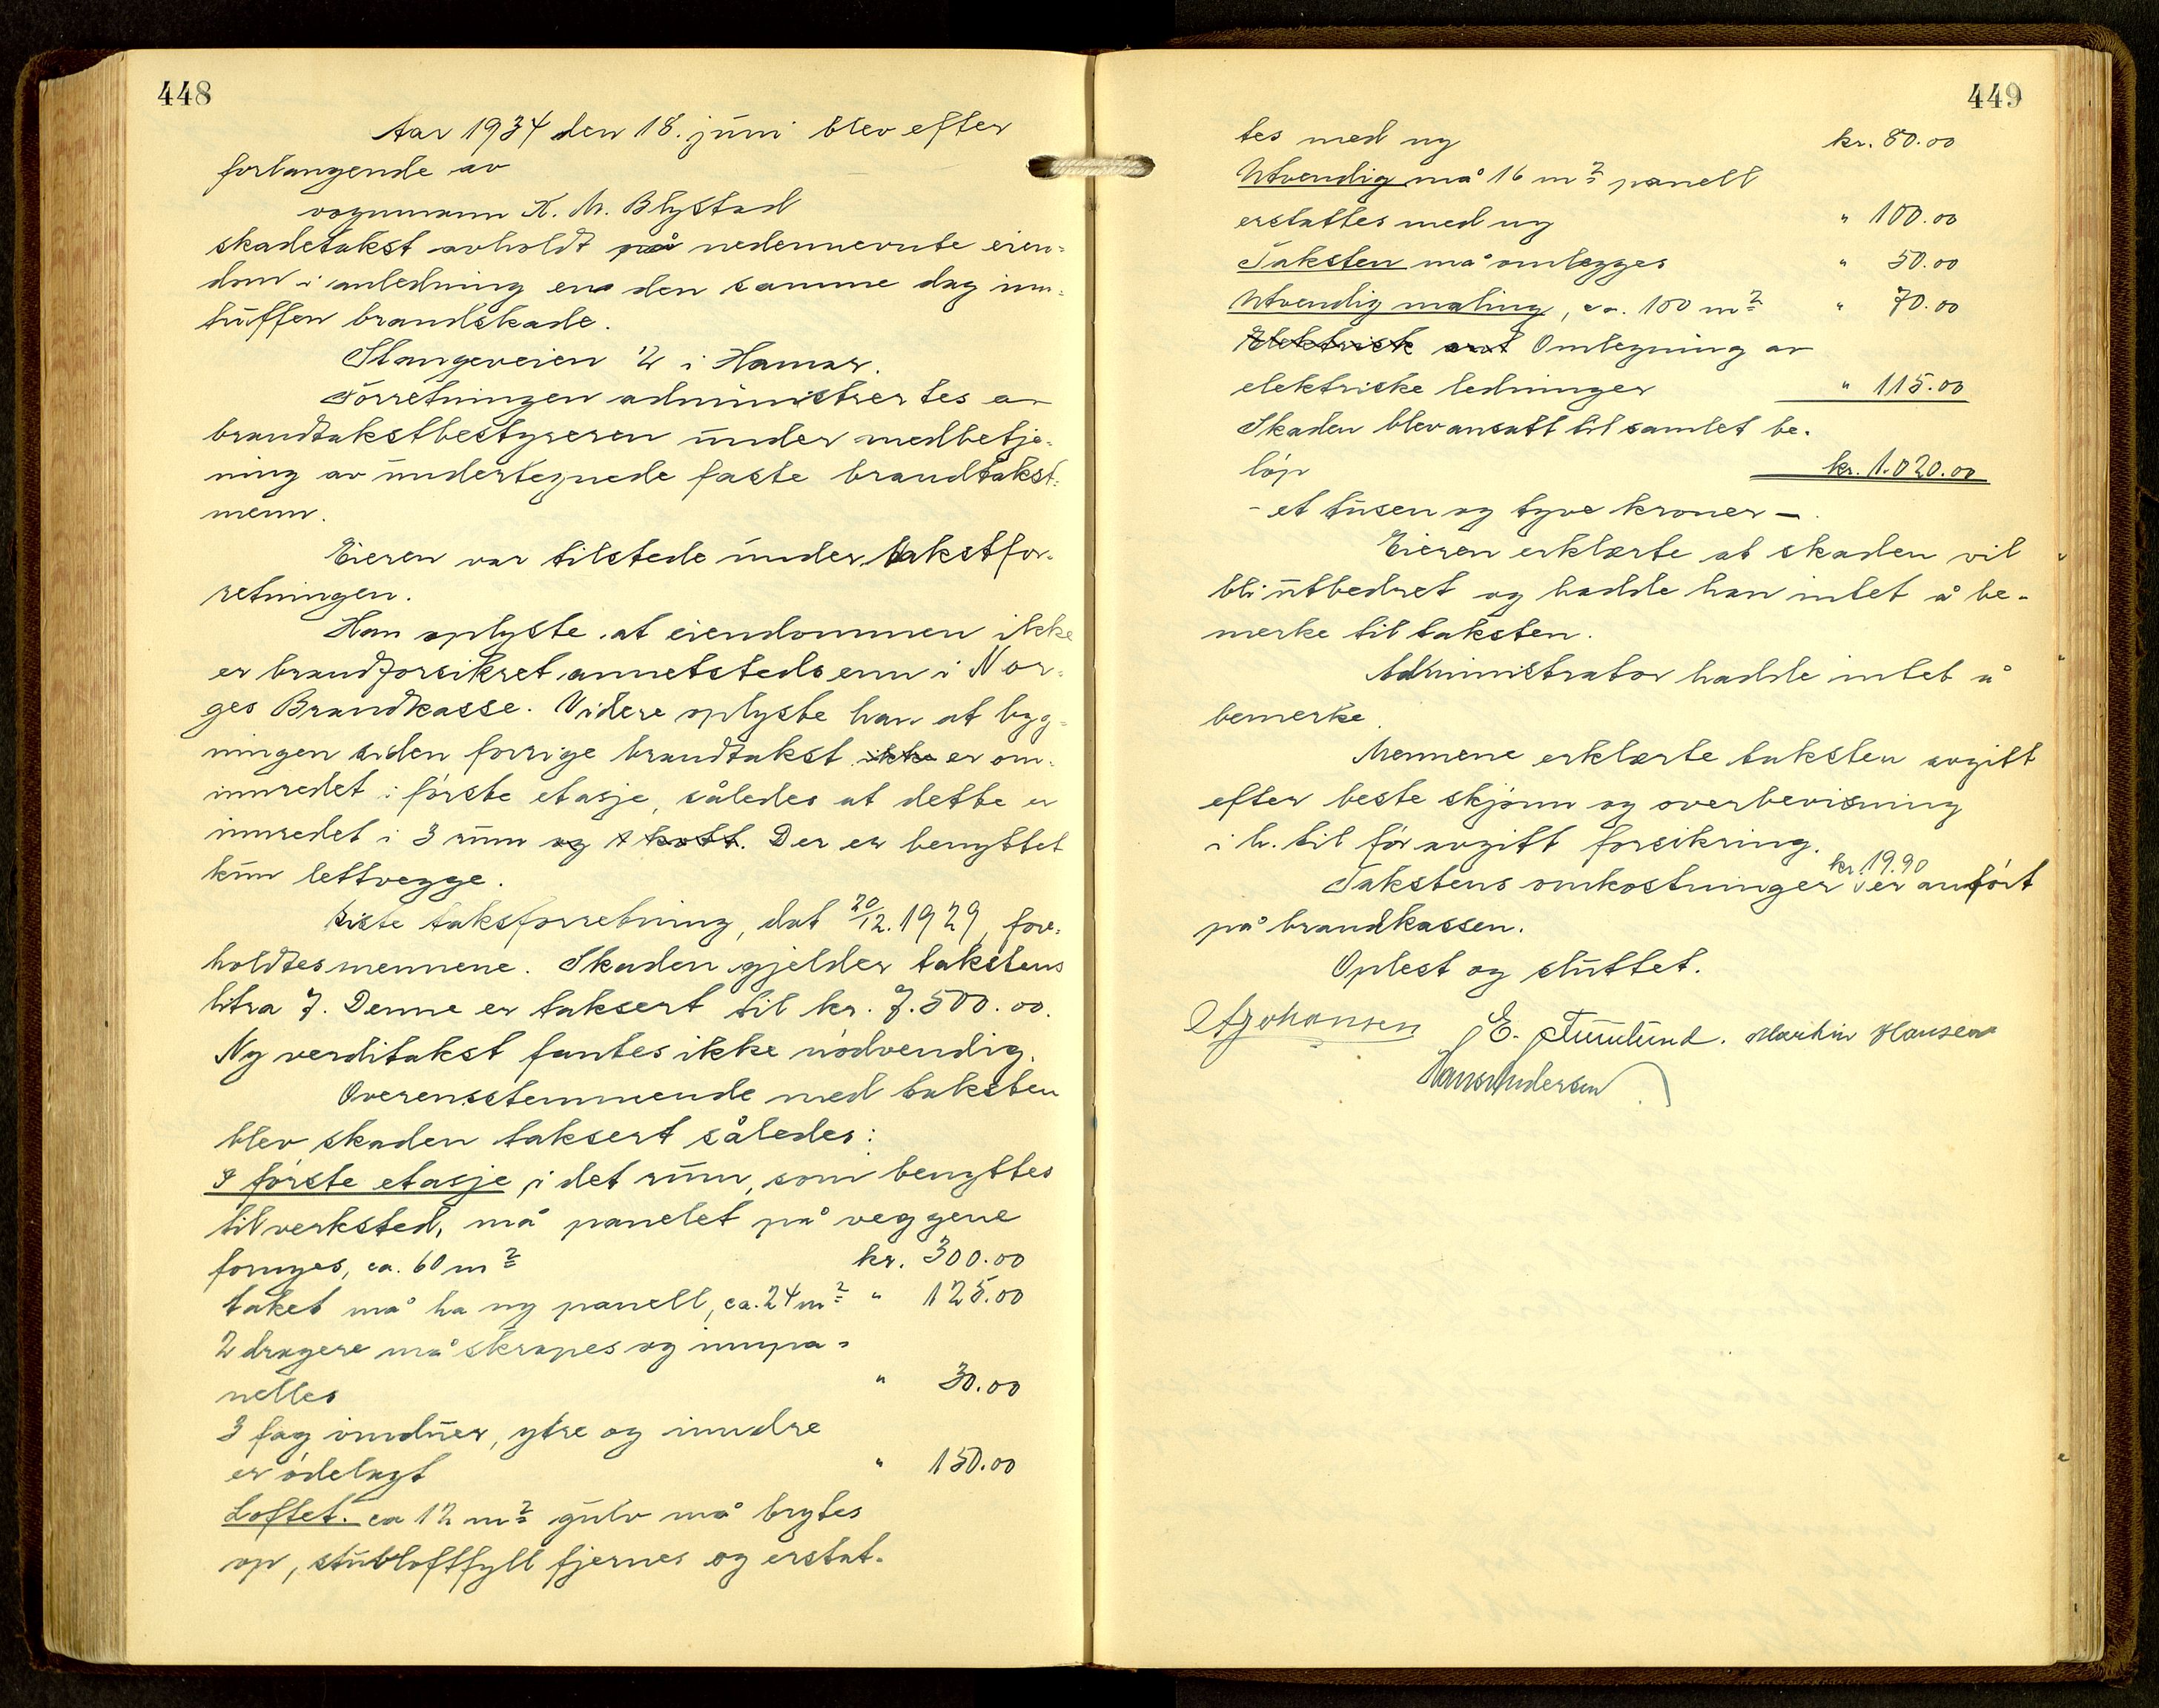 448
Aar 1934 den 18. juni blev efter
forlangende av
vognmann K. M. Blystad
skadetakst avholdt på nedennevnte eien-
dom i anledning en den samme dag inn-
truffen brandskade.
Stangeveien 2 i Hamar.
Forretningen administrertes av
brandtakstbestyreren under medbetje-
ning av undertegnede faste brandtakst-
menn.
Eieren var tilstede under takstfor-
retningen.
Han oplyste at eiendommen ikke
er brandforsikret annetsteds enn i Nor-
ges Brandkasse. Videre oplyste han at byg-
ningen siden forrige brandtakst ikke er om-
innredet i første etasje, således at dette er
innredet i 3 rum og 1 kott. Der er benyttet
kun lettvegge.
Siste taksforretning, dat 20/12. 1929, fore-
holdtes mennene. Skaden gjelder takstens
litra 7. Denne er taksert til kr. 7.500.00.
Ny verditakst fantes ikke nødvendig.
Overensstemmende med taksten
blev skaden taksert således:
I første etasje, i det rum, som benyttes
til verksted, må panelet på veggene
fornyes, ca. 60 m² kr. 300.00
taket må ha ny panell, ca. 24 m² " 125.00
2 dragere må skrapes og innpa-
nelles " 30.00
3 fag vinduer, ytre og inndre
er ødelagt " 150.00
Loftet. ca 12 m² gulv må brytes
op, stubloftfyll fjernes og erstat-
449
tes med ny kr. 80.00
Utvendig må 16 m² panell
erstattes med ny " 100.00
Taksten må omlegges " 50.00
Utvendig maling, ca. 100 m² " 70.00
Elektrisk Omlegning av
elektriske ledninger " 115.00
Skaden blev ansatt til samlet be-
løp kr. 1.020.00
- et tusen og tyve kroner -.
Eieren erklærte at skaden vil
bli utbedret og hadde han intet å be-
merke til taksten.
Administrator hadde intet å
bemerke.
Mennene erklærte taksten avgitt
efter beste skjønn og overbevisning
i h. til før avgitt forsikring.
Takstens omkostninger kr. 19.90 er anført
på brandkassen.
Oplest og sluttet.
Johansen E. Martin Hansen
Hans Andersen